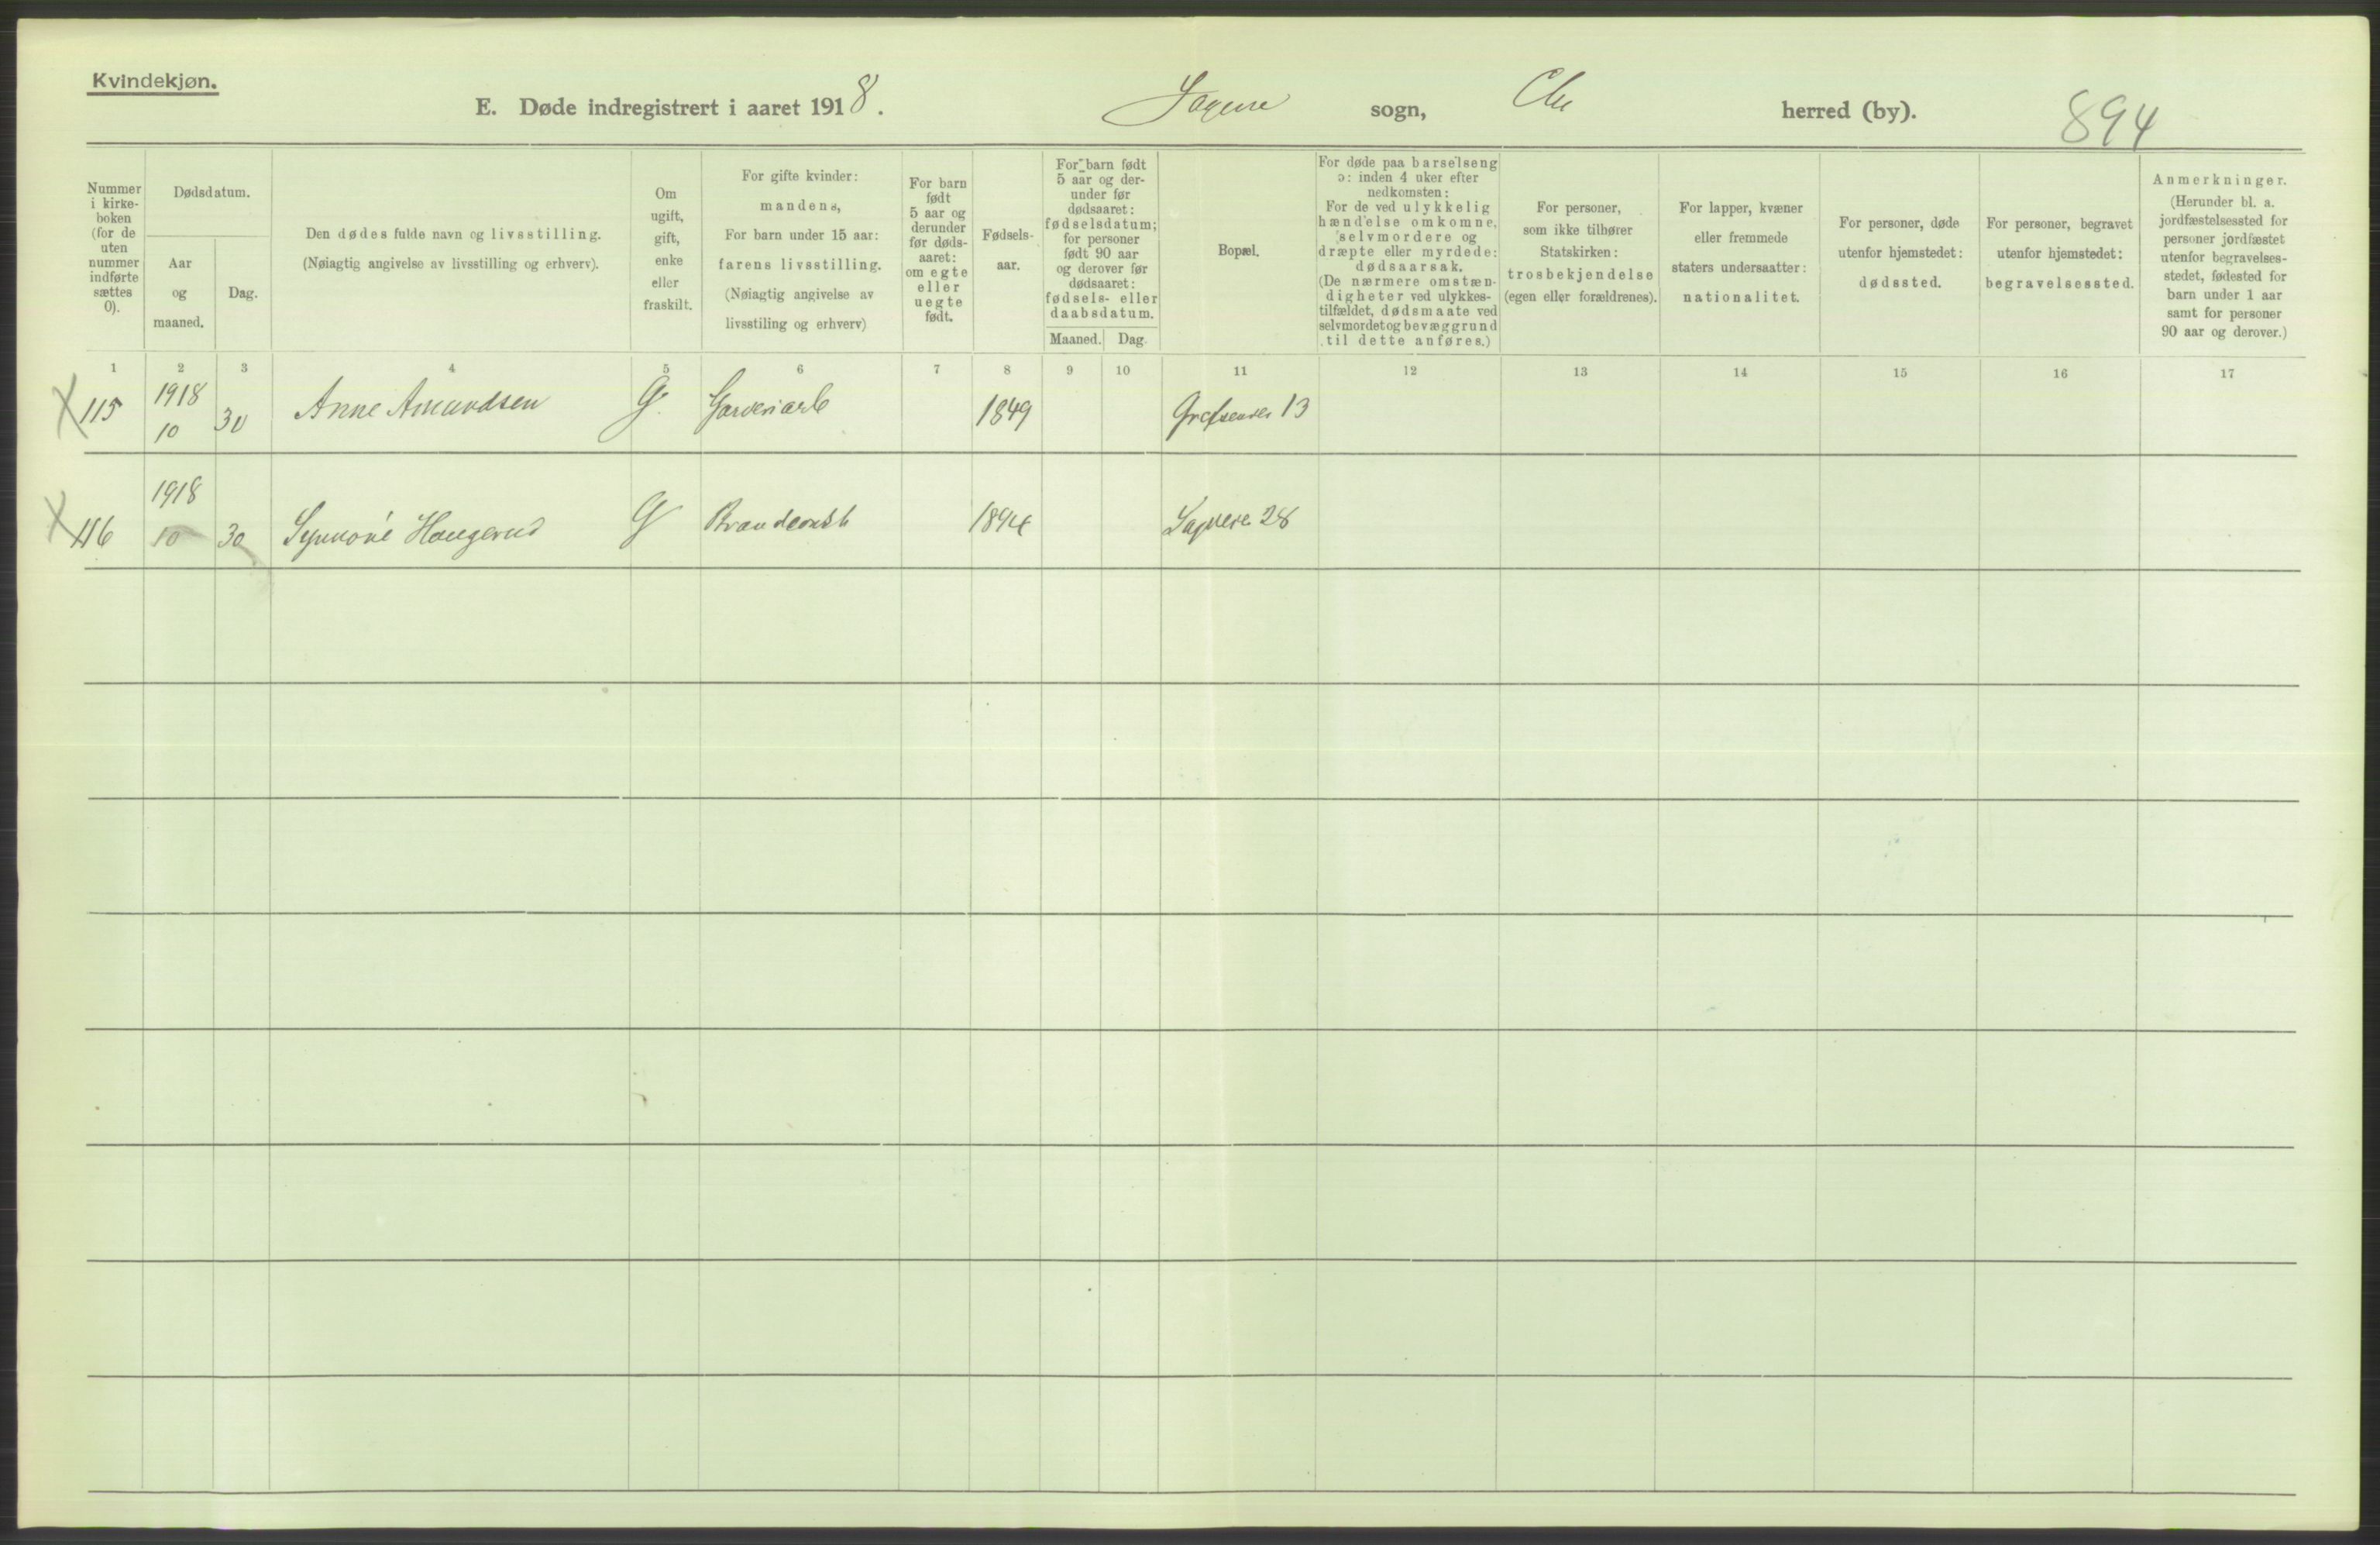 Kvindekjøn.
E. Døde indregistrert i aaret 1918. Sagene sogn, Chr herred (by). 894
Nummer
i kirke-
boken
(for de
uten
nummer
indførte
sættes
0).
Dødsdatum.
Aar
og
maaned.
Dag.
Den dødes fulde navn og livsstilling.
(Nøiagtig angivelse av livsstilling og erhverv).
Om
ugift,
gift,
enke
eller
fraskilt.
For gifte kvinder:
mandens,
For barn under 15 aar:
farens livsstilling.
(Nøiagtig angivelse av
livsstiling og erhverv)
For barn
født
5 aar og
derunder
før døds-
aaret:
om egte
eller
uegte
født.
Fødsels-
aar.
For barn født
5 aar og der-
under før
dødsaaret:
fødselsdatum;
for personer
født 90 aar
og derover før
dødsaaret:
fødsels- eller
daabsdatum.
Maaned. Dag.
Bopæl.
For døde paa barselseng
ɔ: inden 4 uker efter
nedkomsten:
For de ved ulykkelig
hændelse omkomne,
selvmordere og
dræpte eller myrdede:
dødsaarsak.
(De nærmere omstæn-
digheter ved ulykkes-
tilfældet, dødsmaate ved
selvmordet og bevæggrund
til dette anføres.)
For personer,
som ikke tilhører
Statskirken:
trosbekjendelse
(egen eller forældrenes).
For lapper, kvæner
eller fremmede
staters undersaatter:
nationalitet.
For personer, døde
utenfor hjemstedet:
dødssted.
For personer, begravet
utenfor hjemstedet:
begravelsessted.
Anmerkninger.
(Herunder bl. a.
jordfæstelsessted for
personer jordfæstet
utenfor begravelses-
stedet, fødested for
barn under 1 aar
samt for personer
90 aar og derover.)
1 2 3 4 5 6 7 8 9 10 11 12 13 14 15 16 17
X 115 1918 10 30 Anne Amundsen G. Garveriarb 1849 Grefsenvei 13
X 116 1918 10 30 Synnøve Haugerud G 1894 Sagvei 28